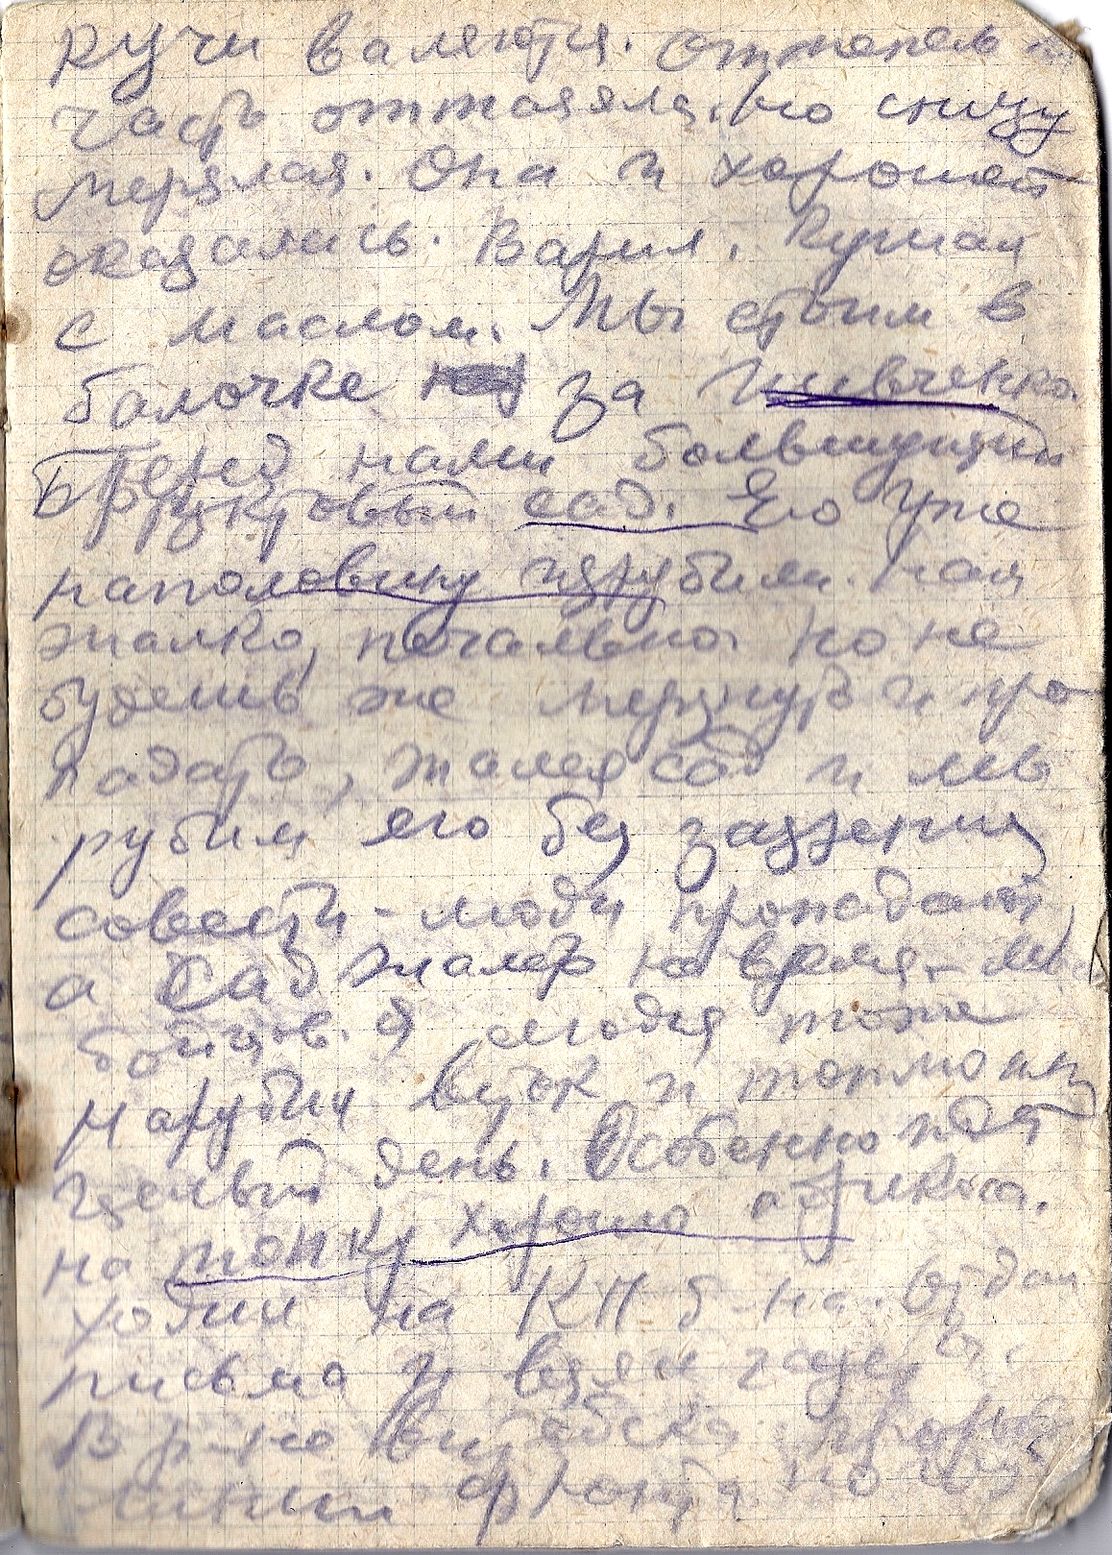 кучи валяются. Оттепель –
часть оттаяла, но снизу
мерзлая. Она и хорошей
оказалась. Варил, кушал
с маслом. Мы стоим в
балочке за Шевченко.
Перед нами большущий
фруктовый сад. Его уже
наполовину изрубили. Нам
жалко, печально. Но не
будешь же мерзнуть и про-
падать, жалея сад и мы
рубим его без зазрения
совести – люди пропадают,
а сад жалеть не время. –
бойцов. Я сегодня тоже
нарубил веток и топлю
целый день. Особенно идет
на топку хорошо абрикоса.
Ходил на КП б-на. Отдал
письма и взял газеты.
В р-не Витебска прорыв
линии фронта